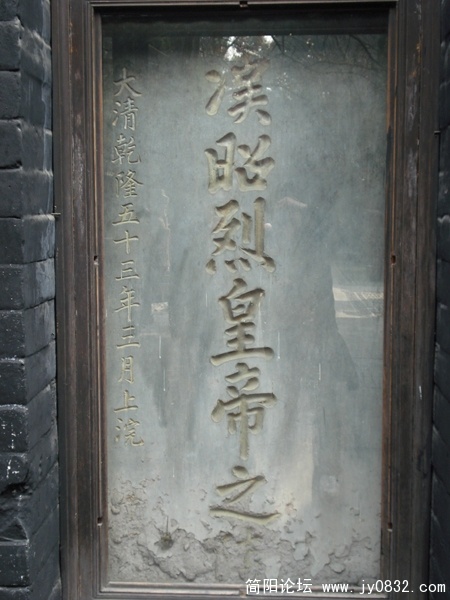 漢昭烈皇帝之
大清乾隆五十三年三月上浣
简阳论坛 www.jy0832.com